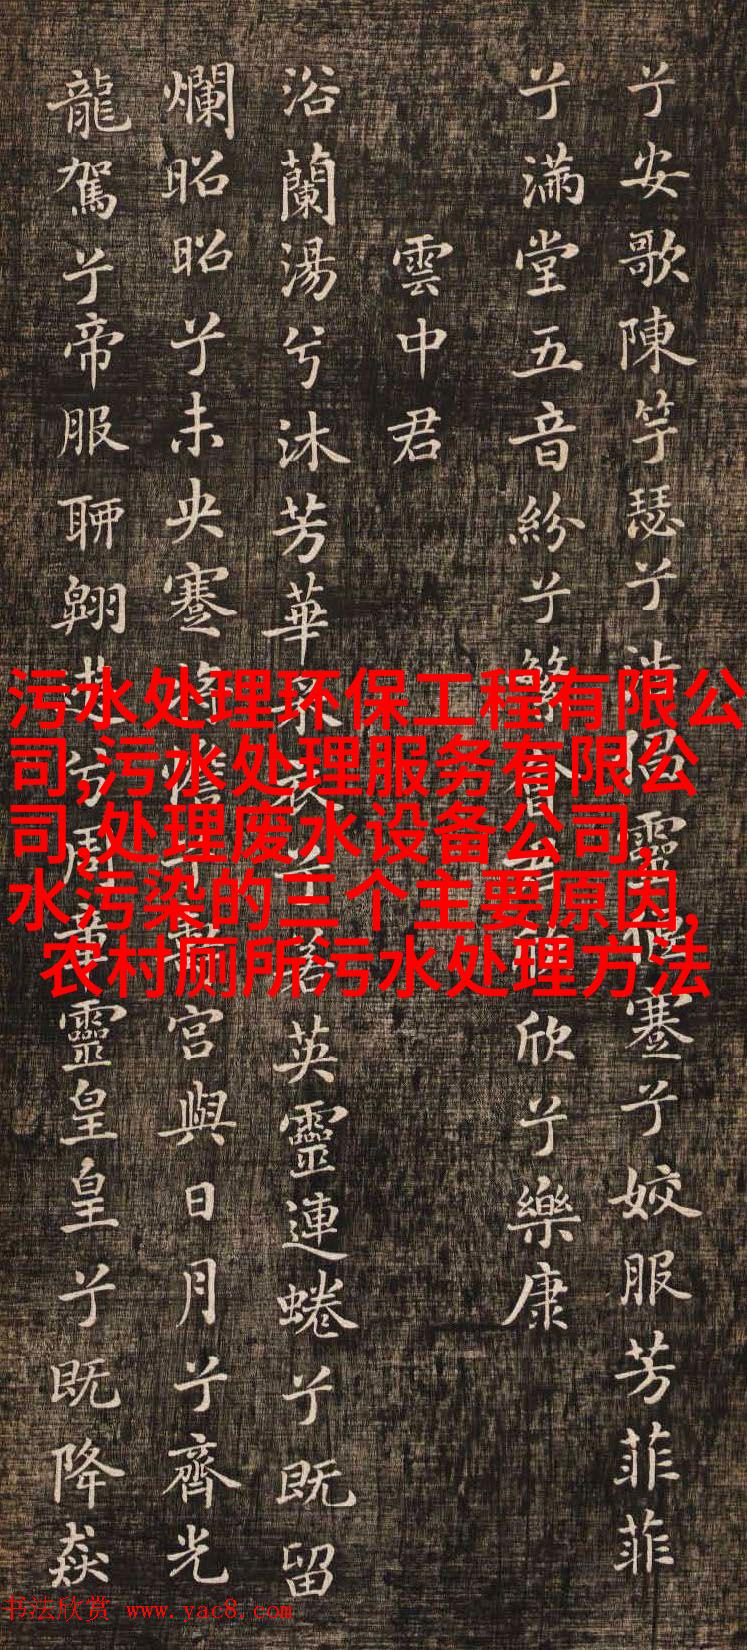 兮安歌陳竽瑟兮浩倡靈偃蹇兮姣服芳菲菲
兮滿堂五音紛兮繁會君欣欣兮樂康
雲中君
浴蘭湯兮沐芳華采衣兮若英靈連蜷兮既留
爛昭昭兮未央蹇將憺兮壽宮與日月兮齊光
龍駕兮帝服聊翱遊兮周章靈皇皇兮既降猋
污水处理环保工程有限公
司,污水处理服务有限公
司,处理废水设备公司,
水污染的三个主要原因,
农村厕所污水处理方法
书法欣赏 www.yac8.com